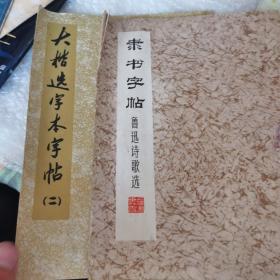 大楷选字本字帖
(二)
隶书字帖
鲁迅诗歌选